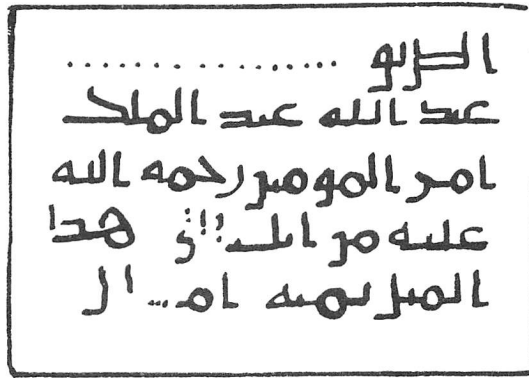 الطريق .................
عبد الله عبد الملك
امير المومنين رحمه الله
عليه من هذا
الميل ثمنيه ام...ا ل